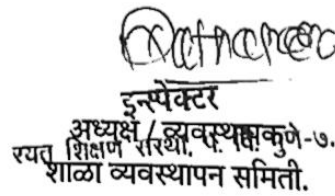 इन्स्पेक्टर
अध्यक्ष / व्यवस्थापक
रयत शिक्षण संस्था, पुणे-७.
शाळा व्यवस्थापन समिती.